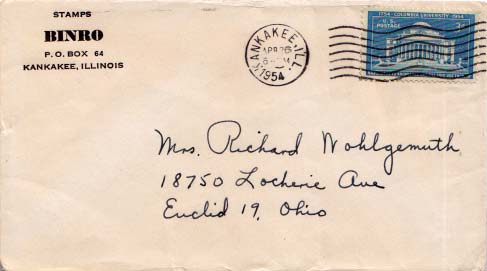 STAMPS
BINRO
P.O. BOX 64
KANKAKEE, ILLINOIS
KANKAKEE, ILL.
APR 26
1954
1754 · COLUMBIA UNIVERSITY · 1954
U.S. POSTAGE
3¢
Mrs. Richard Wohlgemuth
18750 Locherie Ave
Euclid 19, Ohio